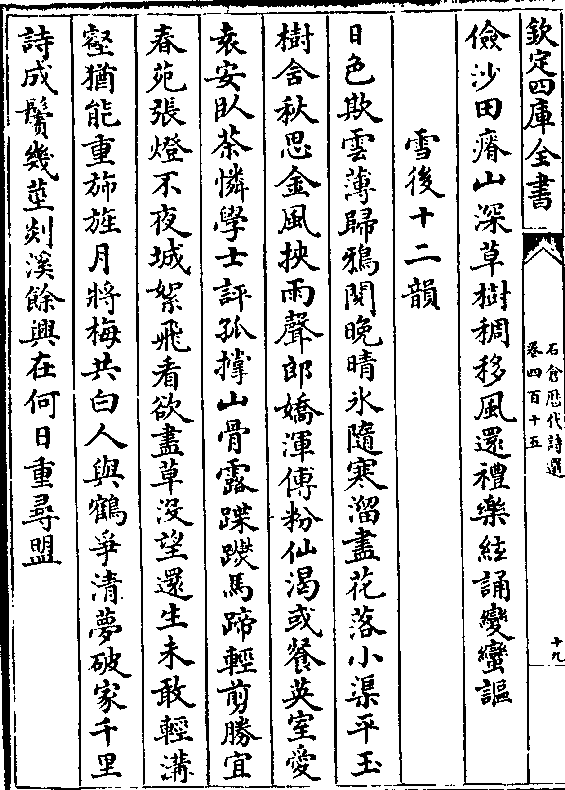 欽定四庫全書
石倉歷代詩選
卷四百十五
十九
儉沙田瘠山深草樹稠移風還禮樂絃誦變蠻謳
雪後十二韻
日色欺雲薄歸鴉閱晚晴氷隨寒溜盡花落小渠平玉
樹含秋思金風挾雨聲郎嬌渾傅粉仙渴或餐英室愛
袁安卧茶憐學士評孤撐山骨露蹀躞馬蹄輕剪勝宜
春苑張燈不夜城絮飛看欲盡草没望還生未敢輕溝
壑猶能重斾旌月將梅共白人與鶴爭清夢破家千里
詩成鬢幾莖剡溪餘興在何日重尋盟